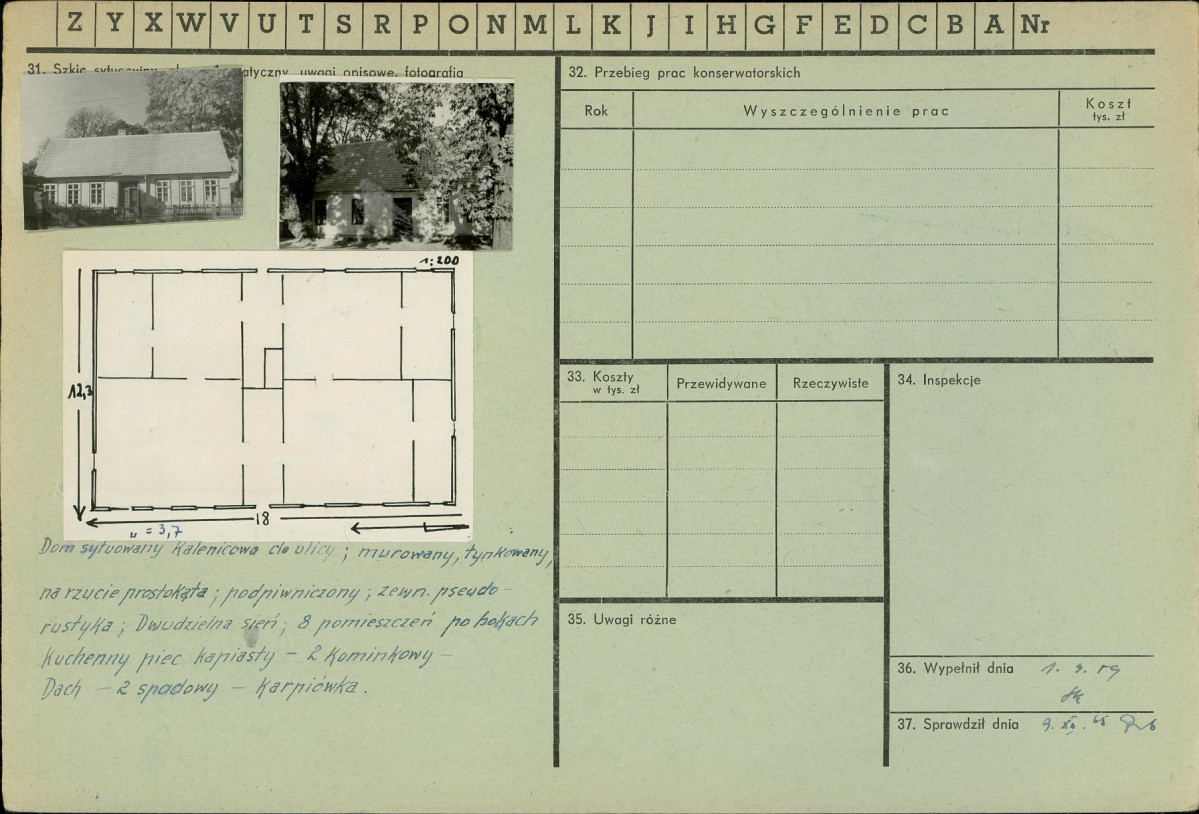 Z Y X W V U T S R P O N M L K J I H G F E D C B A Nr
31. Szkic sytuacyjny, uwagi opisowe, fotografia
1:200
12,3
18
„ = 3,7
Dom sytuowany kalenicowo do ulicy ; murowany, tynkowany,
na rzucie prostokąta ; podpiwniczony ; zewn. pseudo –
rustyka ; Dwudzielna sień ; 8 pomieszczeń po bokach
Kuchenny piec kapiasty – 2 kominkowy –
Dach – 2 spadowy – Karpiówka .
32. Przebieg prac konserwatorskich
Rok
Wyszczególnienie prac
Koszt
tys. zł
33. Koszty
w tys. zł
Przewidywane
Rzeczywiste
34. Inspekcje
35. Uwagi różne
36. Wypełnił dnia
37. Sprawdził dnia 9. XI.